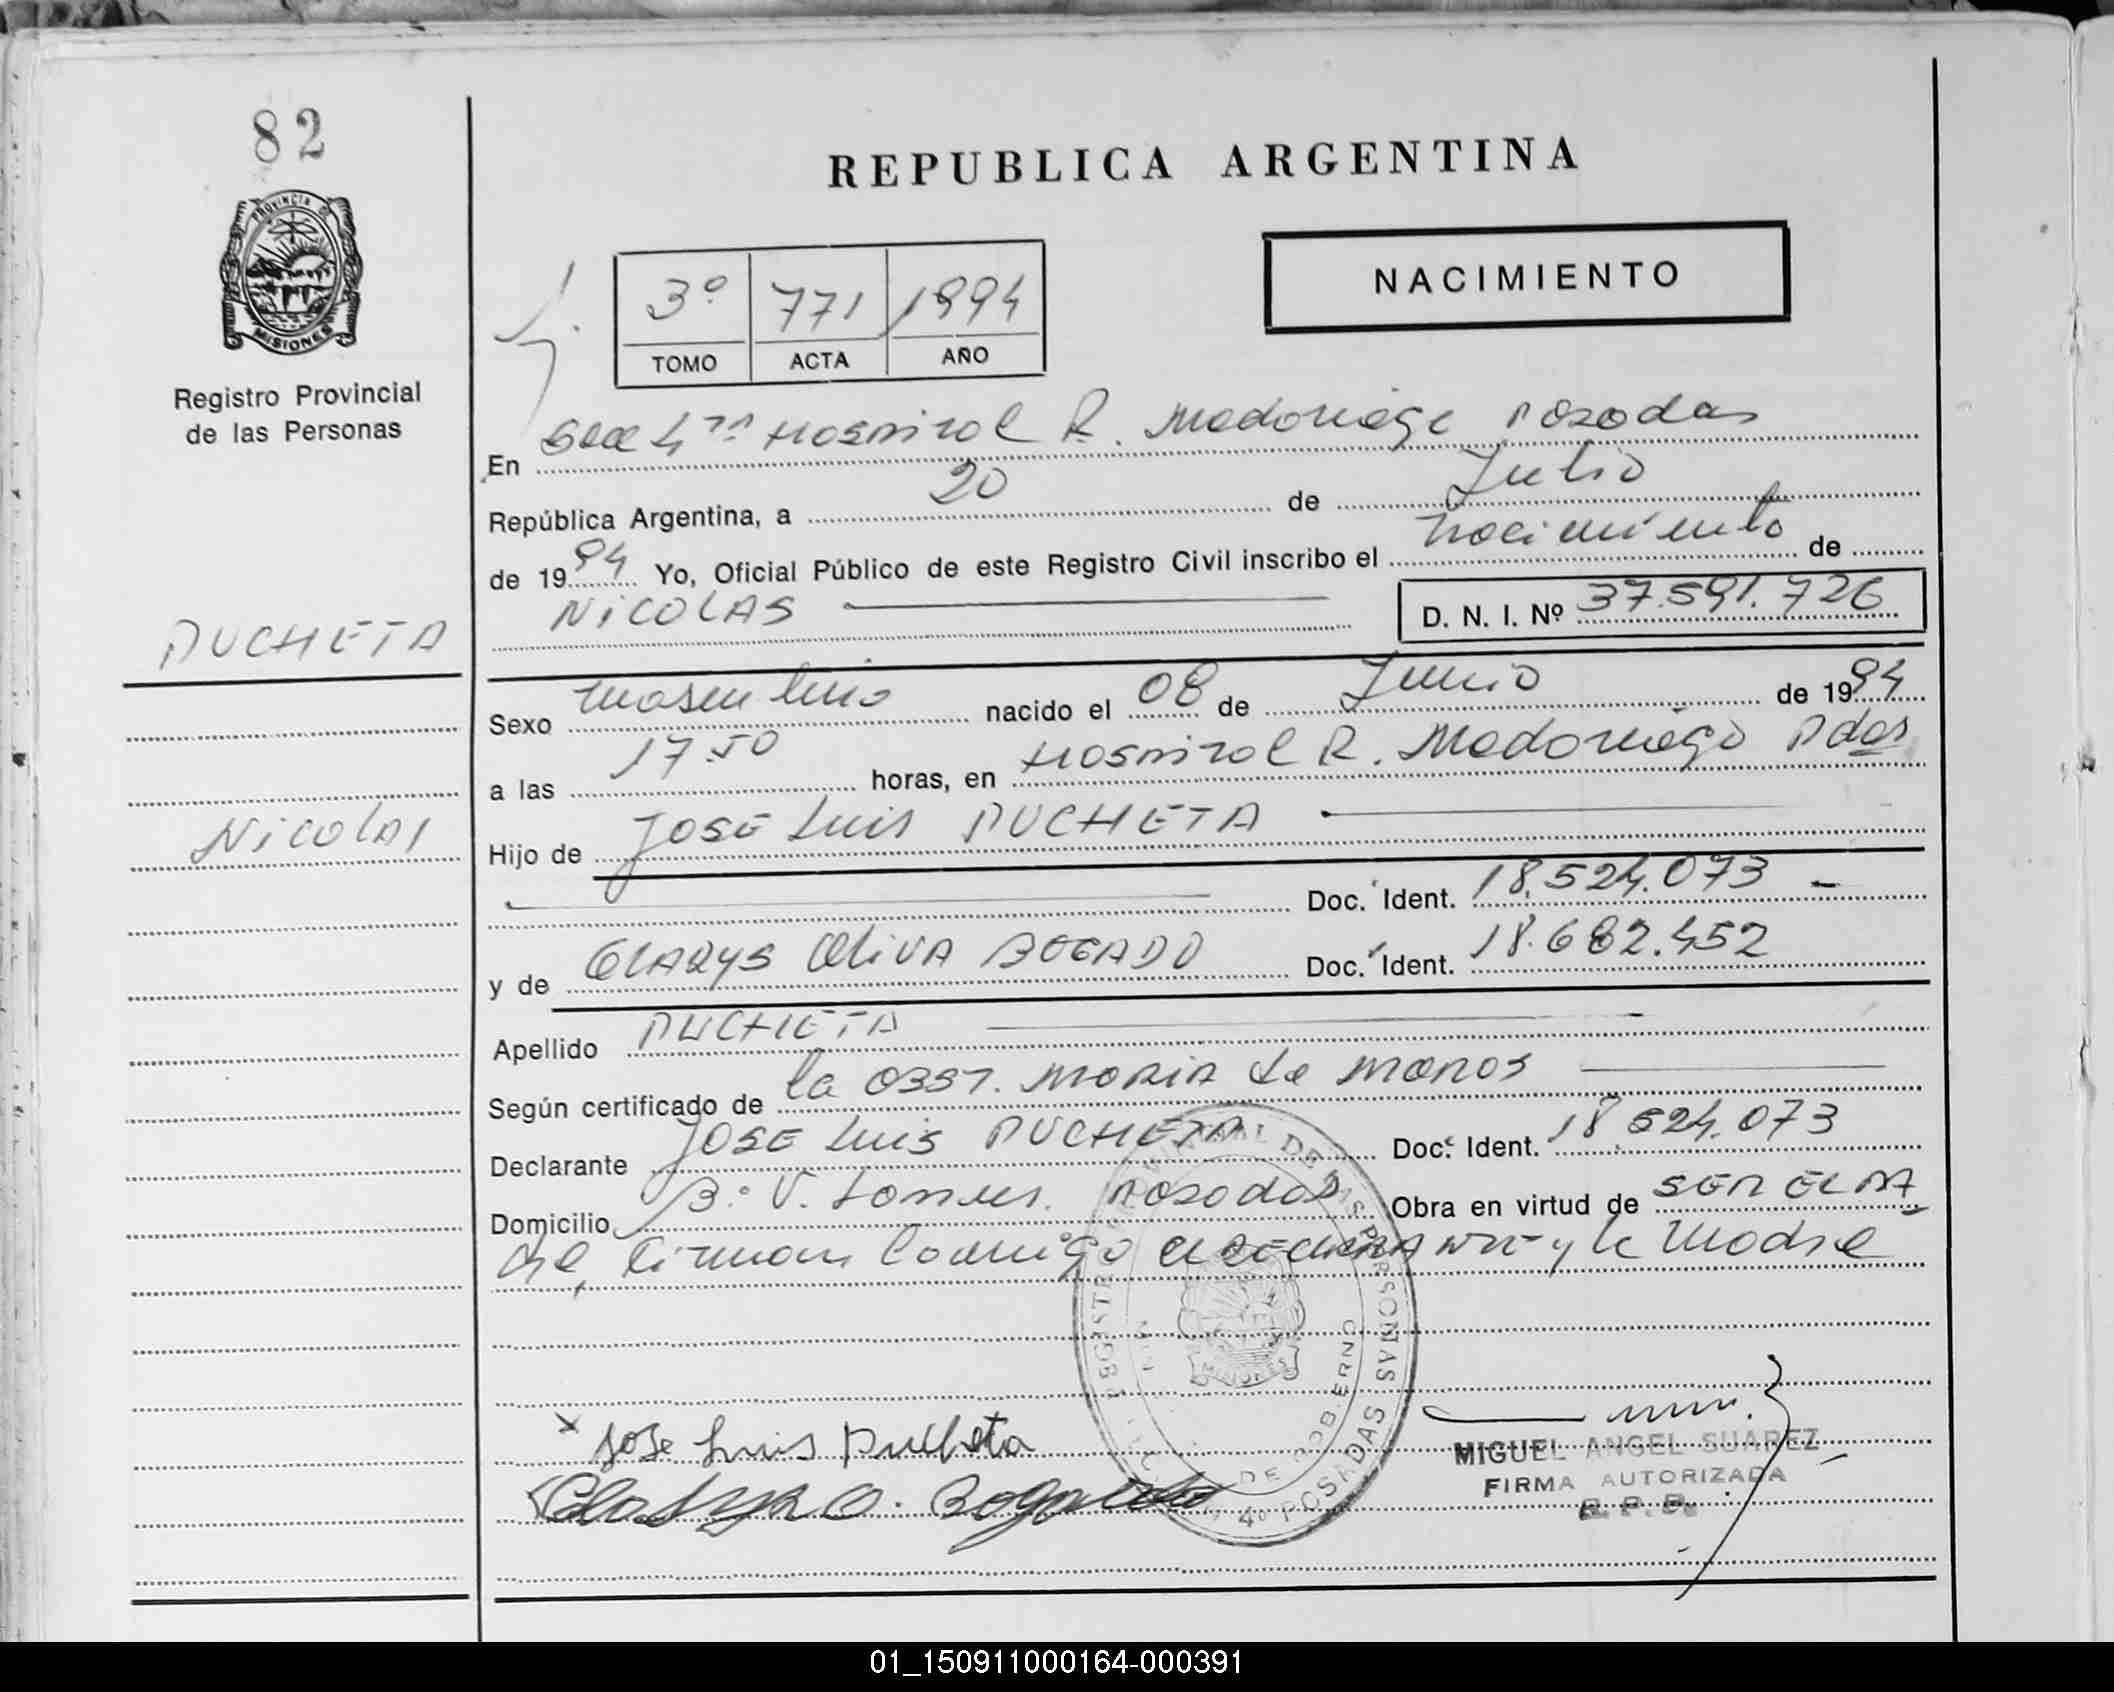 82
PROVINCIA DE
MISIONES
Registro Provincial
de las Personas
REPUBLICA ARGENTINA
NACIMIENTO
3º 771 1994
TOMO ACTA AÑO
En Secc 4ta Hospital R. Madariaga Posadas
República Argentina, a 20 de Julio
de 1994 Yo, Oficial Público de este Registro Civil inscribo el nacimiento de
NICOLAS
D. N. I. Nº 37.591.726
PUCHETA
Nicolas
Sexo masculino nacido el 08 de Junio de 1994
a las 17.50 horas, en Hospital R. Madariaga Pdas
Hijo de José Luis PUCHETA
Doc. Ident. 18.524.073
y de GLADYS OLIVA BOGADO Doc. Ident. 18.682.452
Apellido PUCHETA
Según certificado de la OBST. MARIA de MAROS
Declarante JOSE Luis PUCHETA Doc. Ident. 18.524.073
Domicilio B.º V. Posadas Obra en virtud de SER EL PA
dre, Firman Conmigo el DECLARANTE y la Madre
REGISTRO PROVINCIAL DE LAS PERSONAS
DE GOBIERNO
4º POSADAS
Jose Luis Pucheta
Gladys O. Bogado
MIGUEL ANGEL SUAREZ
FIRMA AUTORIZADA
R. P. P.
01_150911000164-000391